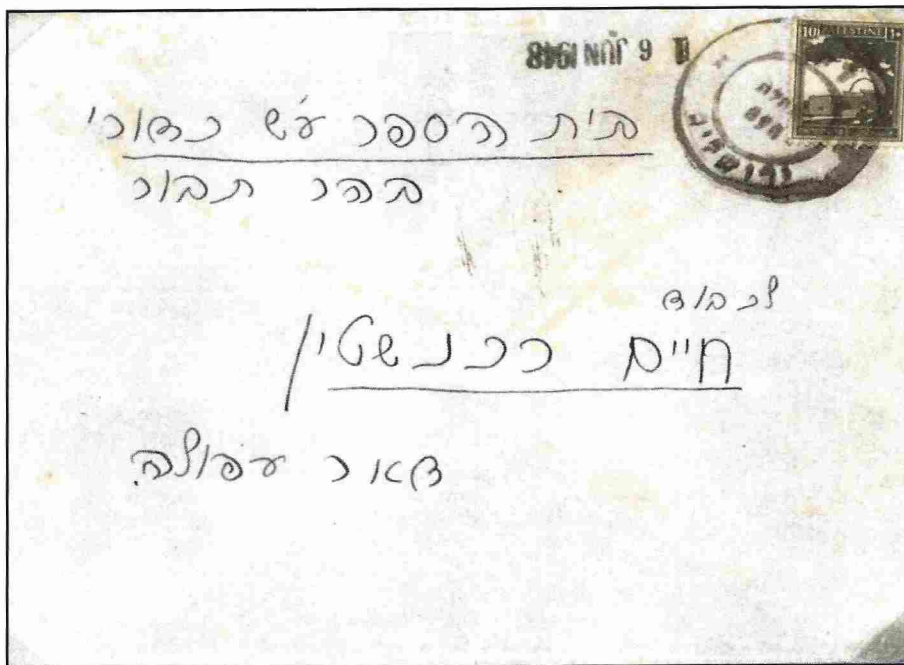 6 JUN 1948
10 PALESTINE
ירושלים
בית הספר ע״ש כדורי
בהר תבור
לכבוד
חיים רכנשטין
דאר עפולה